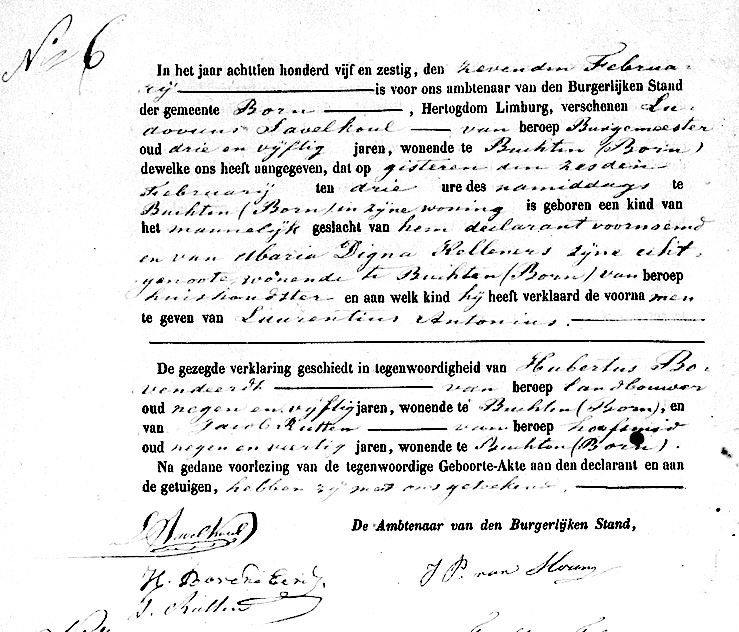 No 6
In het jaar achttien honderd vijf en zestig, den zevenden Februa-
rij is voor ons ambtenaar van den Burgerlijken Stand
der gemeente Born, Hertogdom Limburg, verschenen Lu-
dovicus Savelkoul van beroep Burgemeester
oud drie en vijftig jaren, wonende te Buchten (Born)
dewelke ons heeft aangegeven, dat op gisteren den zesden
Februarij ten drie ure des namiddags te
Buchten (Born) in zijne woning is geboren een kind van
het mannelijk geslacht van hem declarant voornoemd
en van Maria Digna Kelleners zijne echt-
genoote, wonende te Buchten (Born) van beroep
huishoudster en aan welk kind hij heeft verklaard de voornamen
te geven van Laurentius Antonius.
De gezegde verklaring geschiedt in tegenwoordigheid van Hubertus Bo-
vendeerdt van beroep landbouwer
oud negen en vijftig jaren, wonende te Buchten (Born), en
van Jacob Rutten van beroep hoefsmid
oud negen en veertig jaren, wonende te Buchten (Born).
Na gedane voorlezing van de tegenwoordige Geboorte-Akte aan den declarant en aan
de getuigen, hebben zij met ons geteekend.
De Ambtenaar van den Burgerlijken Stand,
L Savelkoul
H. Bovendeerdt.
J P. van
J. Rutten